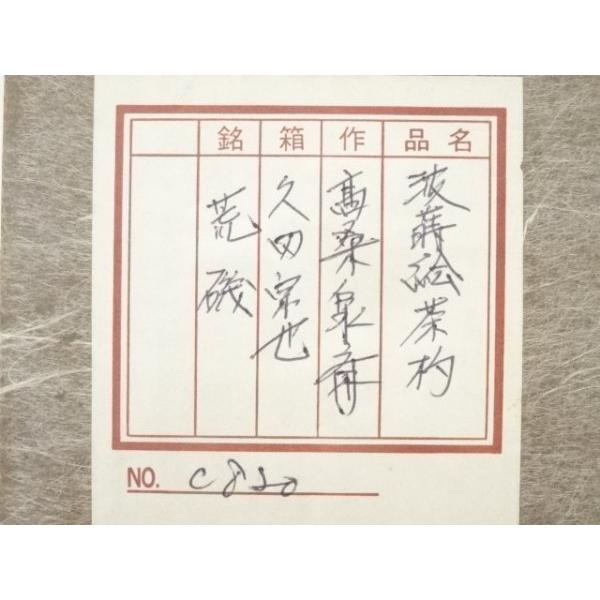 品名
波蒔絵茶杓
作
髙桑泉斉
箱
久田宗也
銘
荒磯
NO. C850